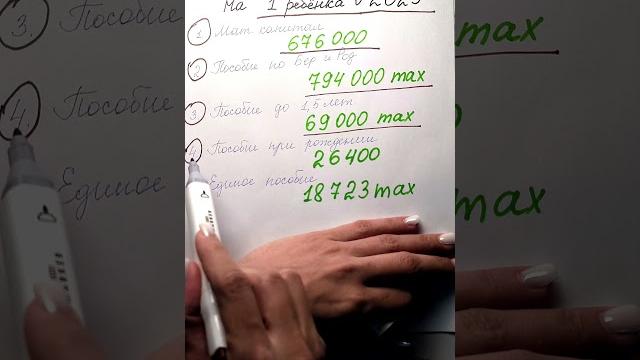 На 1 ребёнка в 2025
1 Мат капитал
676 000
2 Пособие по Бер и Род
794 000 max
3 Пособие до 1,5 лет
69 000 max
4. Пособие при рождении
26400
Единое пособие
18723 max